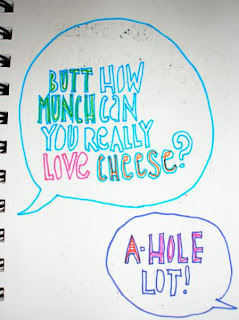 BUTT HOW
MUNCH CAN
YOU REALLY
LOVE CHEESE?
A-HOLE
LOT!